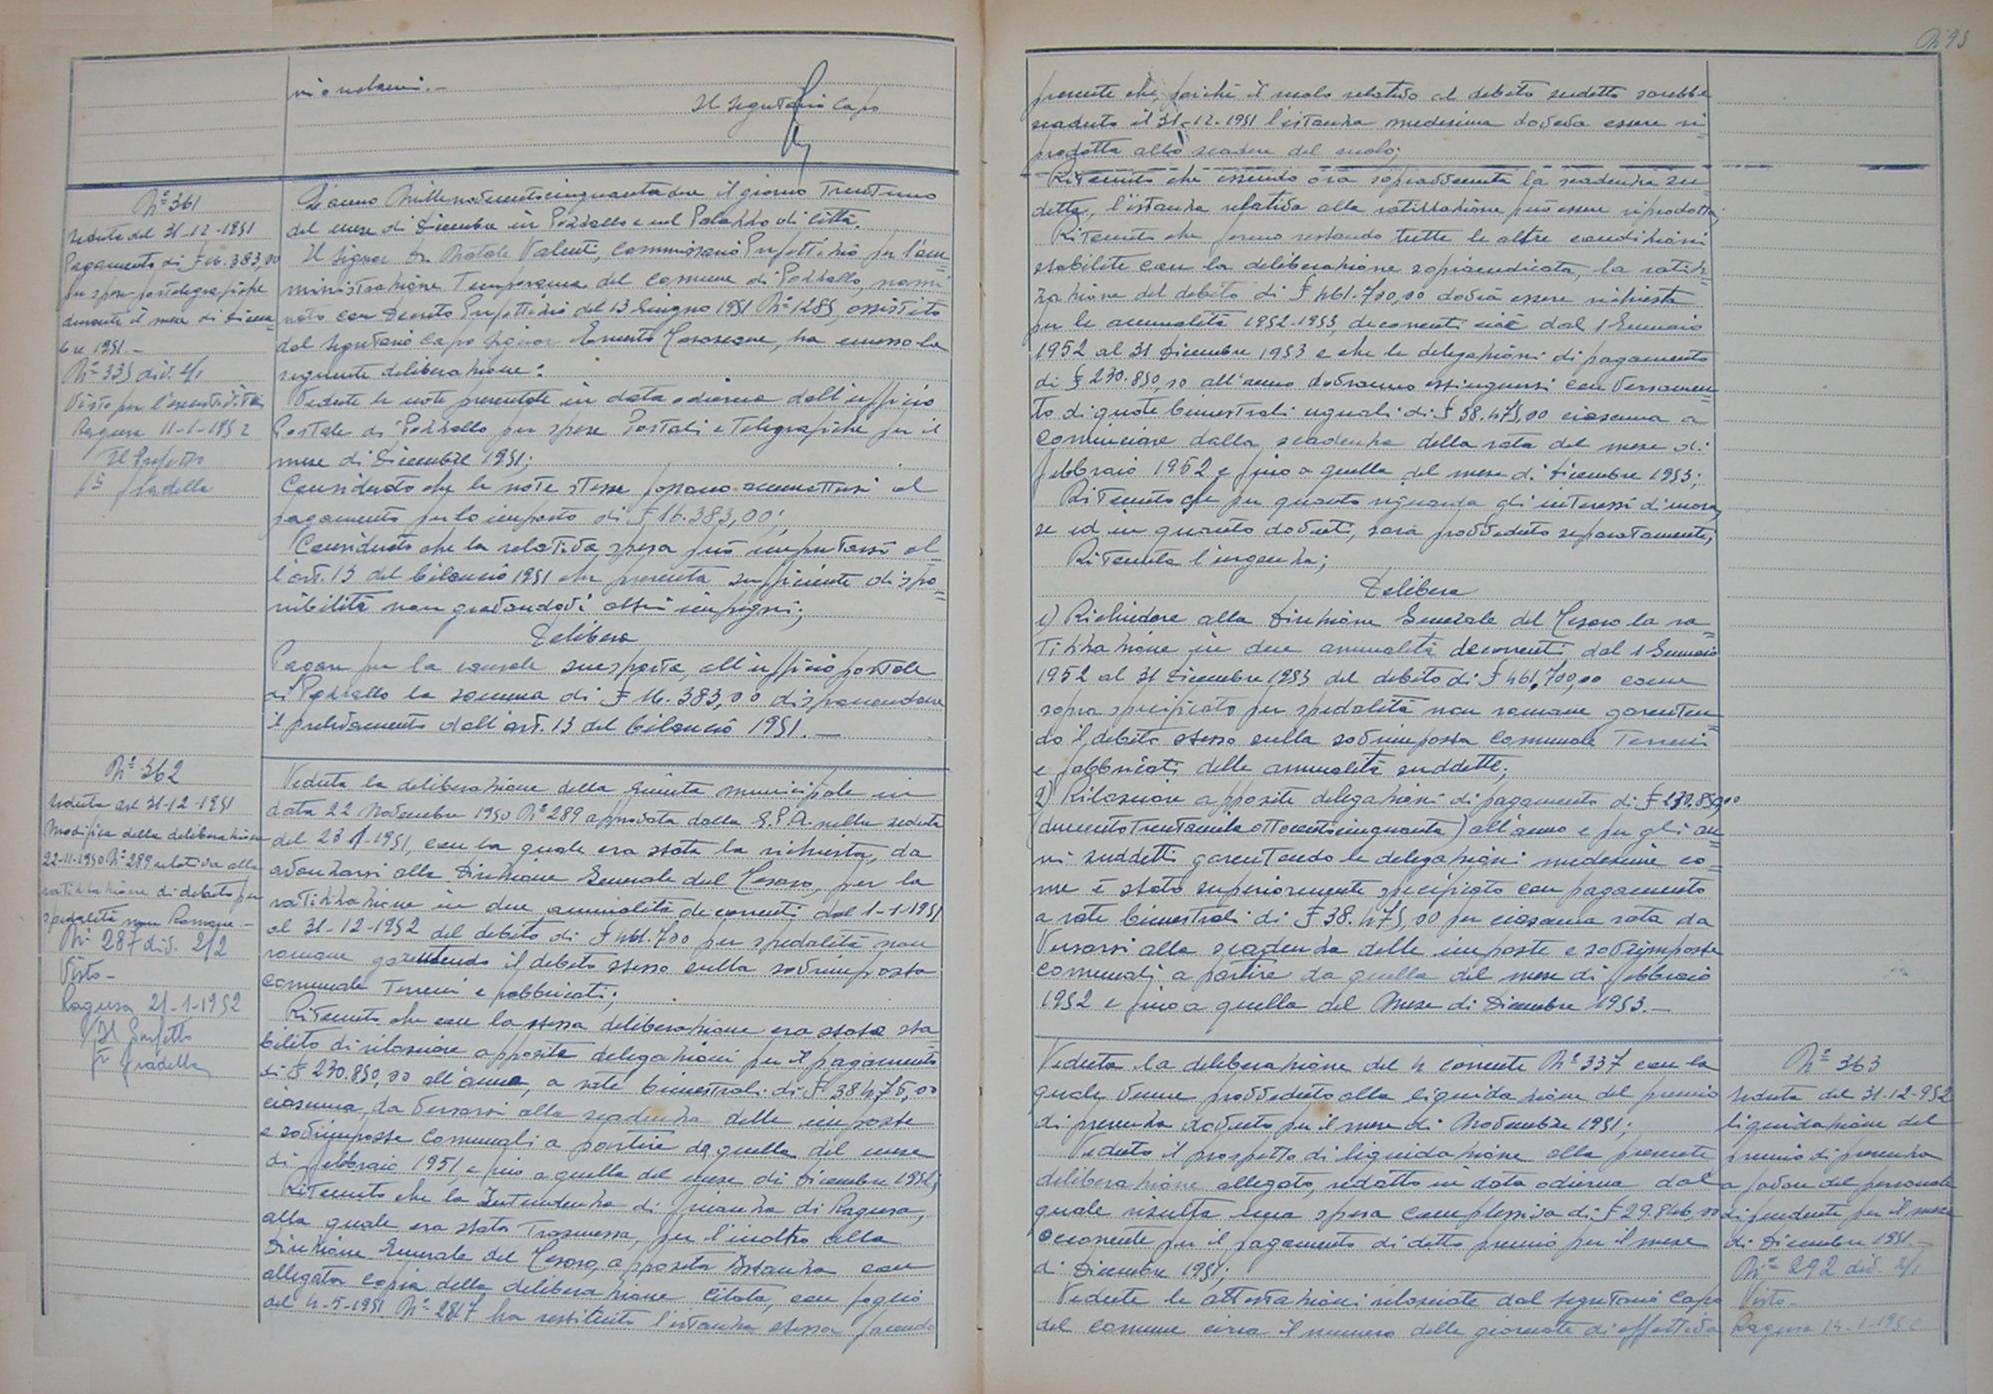 Il Segretario Capo
N° 361
Seduta del 31-12-1951
Pagamento di £ 16.383,00
per spese postelegrafiche
durante il mese di Dicem=
bre 1951.-
N° 335 div. 2/1
Visto per l'esecutività
Ragusa 11-1-1952
Il Prefetto
Gradella
L'anno Millenovecentocinquantadue il giorno Trentuno
del mese di Dicembre in Pozzallo e nel Palazzo di città.
Il Signor Natale Valenti, Commissario Prefettizio per l'am=
ministrazione Temporanea del Comune di Pozzallo, nomi=
nato con Decreto Prefettizio del 13 Giugno 1951 N° 1285, assistito
dal Segretario Capo Signor Ernesto, ha emesso la
seguente deliberazione:
Vedute le note presentate in data odierna dall'ufficio
Postale di Pozzallo per spese Postali e Telegrafiche per il
mese di Dicembre 1951;
Considerato che le note stesse possono ammettersi al
pagamento per lo importo di £ 16.383,00;
Considerato che la relativa spesa può imputarsi al=
l'art. 13 del bilancio 1951 che presenta sufficiente dispo=
nibilità non gravandovi altri impegni;
Delibera
Pagare per la causale suesposta, all'ufficio postale
di Pozzallo la somma di £ 16.383,00 disponendone
il prelevamento dall'art. 13 del bilancio 1951.-
N° 362
Seduta del 31-12-1951
Modifica della deliberazione
22-11-1950 N° 289 relativa alla
ratizzazione di debito per
spedalità non Romane.-
N° 287 div. 2/2
Visto-
Ragusa 21-1-1952
Il Prefetto
Gradella
Veduta la deliberazione della Giunta municipale in
data 22 Novembre 1950 N° 289 approvata dalla G.P.A. nella seduta
del 23 1-1951, con la quale era stata la richiesta, da
avanzarsi alla Direzione Generale del Tesoro, per la
ratizzazione in due annualità decorrenti dal 1-1-1951
al 31-12-1952 del debito di £ 461.700 per spedalità non
romane garentendo il debito stesso sulla sovrimposta
comunale Terreni e fabbricati;
Ritenuto che con la stessa deliberazione era stato sta=
bilito di rilasciare apposite delegazioni per il pagamento
di £ 230.850,00 all'anno, a rate bimestrali di £ 38475,00
ciascuna, da versarsi alla scadenza delle imposte
e sovrimposte Comunali a partire da quella del mese
di febbraio 1951 e fino a quella del mese di Dicembre 1952;
Ritenuto che la Intendenza di finanza di Ragusa,
alla quale era stata Trasmessa, per l'inoltro alla
Direzione Generale del Tesoro, apposita Istanza con
allegata copia della deliberazione citata, con foglio
del 4-5-1951 N° 2817 ha restituito l'istanza stessa facendo
presente che, poiché il ruolo relativo al debito sudetto sarebbe
scaduto il 31-12-1951 l'istanza medesima doveva essere ri=
prodotta allo scadere del ruolo;
Ritenuto che essendo ora sopravvenuta la scadenza su=
detta, l'istanza relativa alla ratizzazione può essere riprodotta;
Ritenuto che fermo restando tutte le altre condizioni
stabilite con la deliberazione sopraindicata, la ratiz=
zazione del debito di £ 461.700,00 dovrà essere richiesta
per le annualità 1952-1953 decorrenti cioè dal 1 Gennaio
1952 al 31 Dicembre 1953 e che le delegazioni di pagamento
di £ 230.850,00 all'anno dovranno estinguersi con versamen=
to di quote bimestrali uguali di £ 38.475,00 ciascuna a
cominciare dalla scadenza della rata del mese di
febbraio 1952 e fino a quella del mese di Dicembre 1953;
Ritenuto che per quanto riguarda gli interessi di mora,
se ed in quanto dovuti, sarà provveduto separatamente;
Ritenuta l'urgenza;
Delibera
1) Richiedere alla Direzione Generale del Tesoro la ra=
tizzazione in due annualità decorrenti dal 1 Gennaio
1952 al 31 Dicembre 1953 del debito di £ 461.700,00 come
sopra specificato per spedalità non romane garenten=
do il debito stesso sulla sovrimposta Comunale Terreni
e fabbricati delle annualità suddette;
2) Rilasciare apposite delegazioni di pagamento di £ 230.850,00
(duecentotrentamilaottocentocinquanta) all'anno e per gli an=
ni suddetti garentendo le delegazioni medesime co=
me è stato superiormente specificato con pagamento
a rate bimestrali di £ 38.475,00 per ciascuna rata da
versarsi alla scadenza delle imposte e sovrimposte
comunali a partire da quella del mese di febbraio
1952 e fino a quella del Mese di Dicembre 1953.-
Veduta la deliberazione del 4 corrente N° 337 con la
quale venne provveduto alla liquidazione del premio
di presenza dovuto per il mese di Novembre 1951;
Veduto il prospetto di liquidazione alla presente
deliberazione allegato, redatto in data odierna dal
quale risulta una spesa complessiva di £ 29.846,00
occorrente per il pagamento di detto premio per il mese
di Dicembre 1951;
Vedute le attestazioni rilasciate dal Segretario Capo
del comune circa il numero delle giornate di effettiva
N° 363
Seduta del 31-12-952
liquidazione del
premio di presenza
a favore del personale
dipendente per il mese
di Dicembre 1951.-
N° 292 div. 2/1
Visto-
Ragusa 14-1-1952